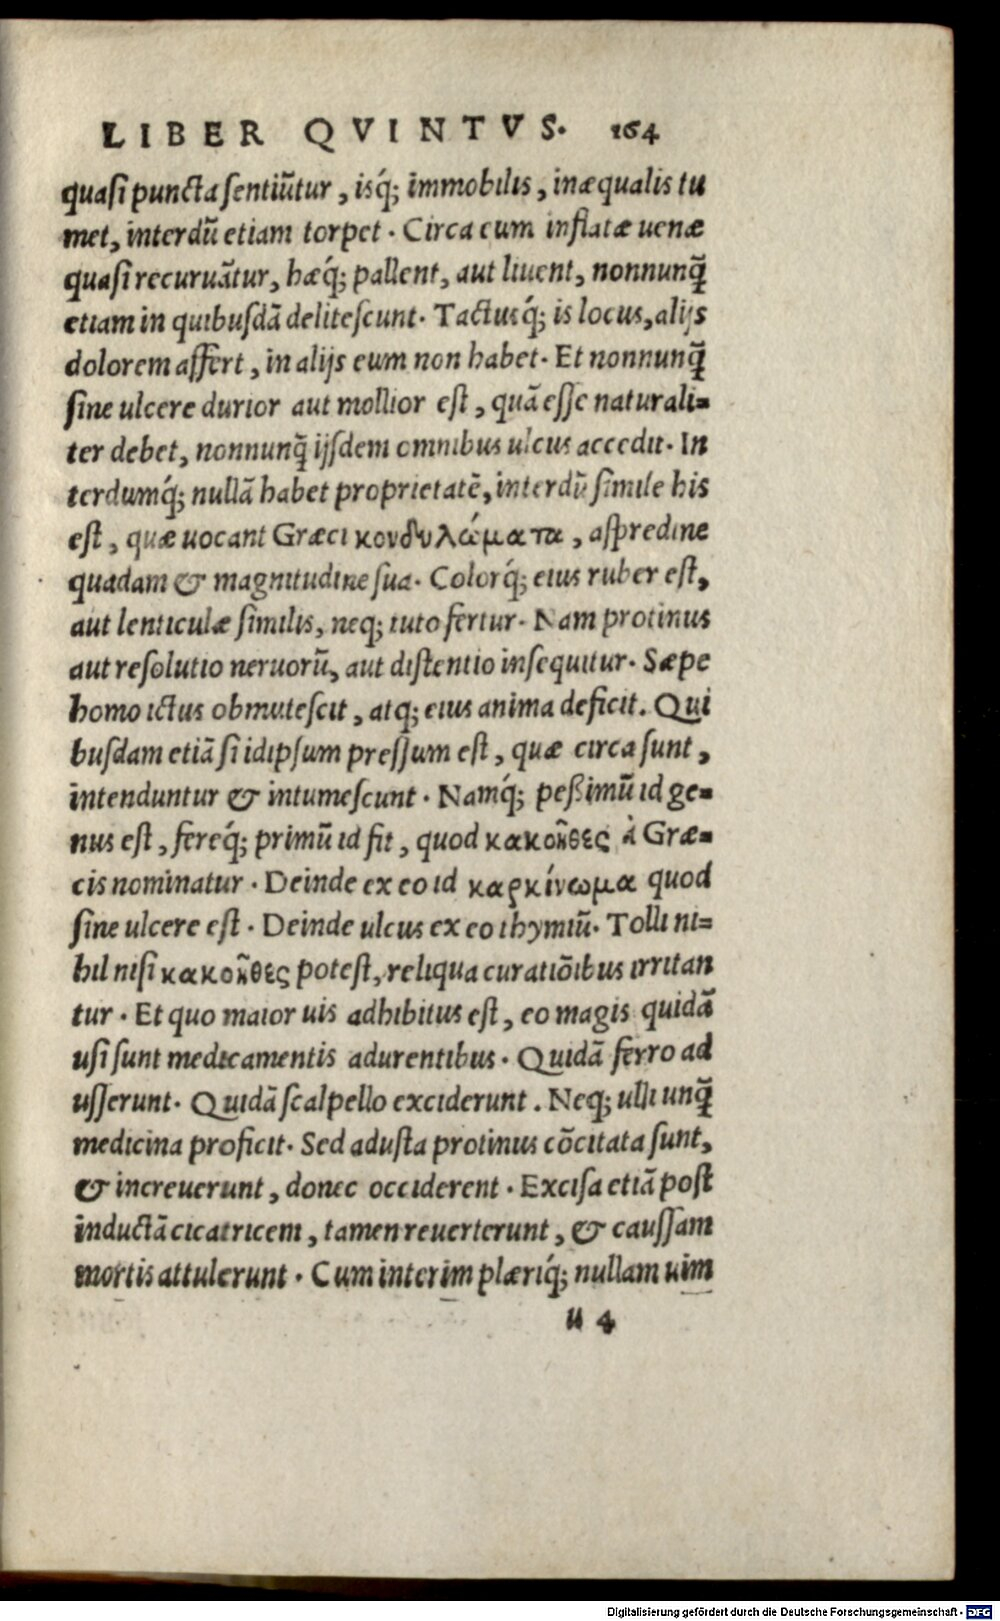 LIBER QVINTVS. 164
quasi puncta sentiūtur, isq́; immobilis, inæqualis tu
met, interdū etiam torpet. Circa eum inflatæ uenæ
quasi recuruātur, hæq́; pallent, aut liuent, nonnunq̄
etiam in quibusdā delitescunt. Tactusq́; is locus, alijs
dolorem affert, in alijs eum non habet. Et nonnunq̄
sine ulcere durior aut mollior est, quā esse naturali=
ter debet, nonnunq̄ ijsdem omnibus ulcus accedit. In
terdumq́; nullā habet proprietatē, interdū simile his
est, quæ uocant Græci κονδυλώματα, aspredine
quadam & magnitudine sua. Colorq́; eius ruber est,
aut lenticulæ similis, neq; tuto fertur. Nam protinus
aut resolutio neruorū, aut distentio insequitur. Sæpe
homo ictus obmutescit, atq; eius anima deficit. Qui
busdam etiā si idipsum pressum est, quæ circa sunt,
intenduntur & intumescunt. Namq́; peßimū id ge=
nus est, fereq́; primū id fit, quod κακοῆθες à Græ=
cis nominatur. Deinde ex eo id καρκίνωμα quod
sine ulcere est. Deinde ulcus ex eo thymiū. Tolli ni=
hil nisi κακοῆθες potest, reliqua curatiōibus irritan
tur. Et quo maior uis adhibitus est, eo magis quidā
usi sunt medicamentis adurentibus. Quidā ferro ad
usserunt. Quidā scalpello exciderunt. Neq; ulli unq̄
medicina proficit. Sed adusta protinus cōcitata sunt,
& increuerunt, donec occiderent. Excisa etiā post
inductā cicatricem, tamen reuerterunt, & caussam
mortis attulerunt. Cum interim plæriq́; nullam uim
u 4
Digitalisierung gefördert durch die Deutsche Forschungsgemeinschaft - DFG